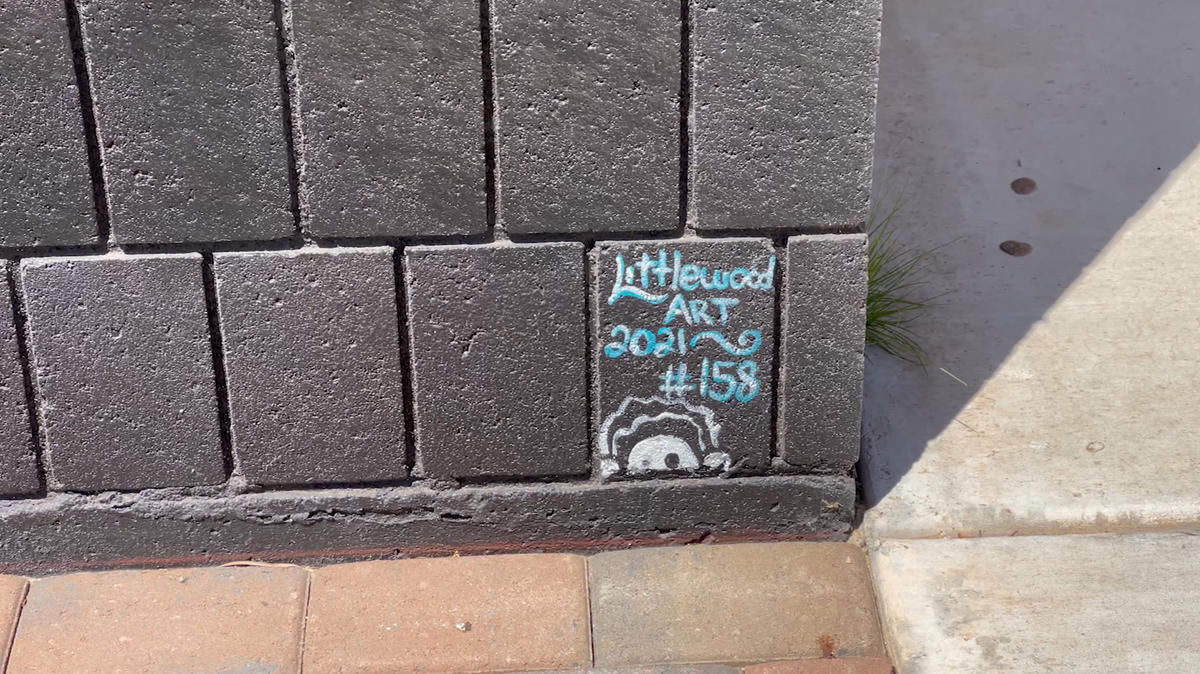 Littlewood
ART
2021
#158